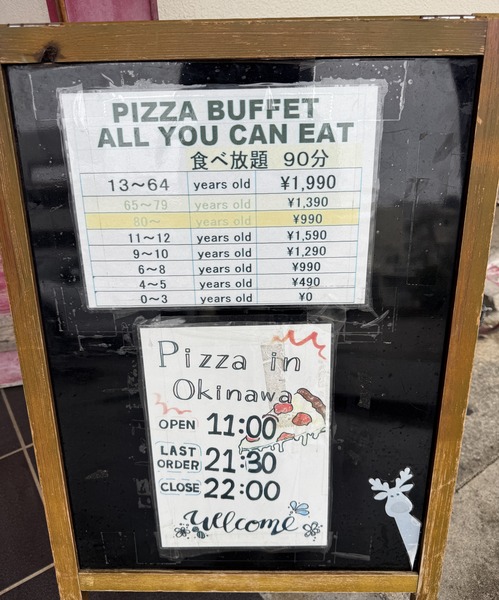 PIZZA BUFFET
ALL YOU CAN EAT
食べ放題 90分
13～64 years old ¥1,990
65～79 years old ¥1,390
80～ years old ¥990
11～12 years old ¥1,590
9～10 years old ¥1,290
6～8 years old ¥990
4～5 years old ¥490
0～3 years old ¥0
Pizza in
Okinawa
OPEN 11:00
LAST ORDER 21:30
CLOSE 22:00
Welcome